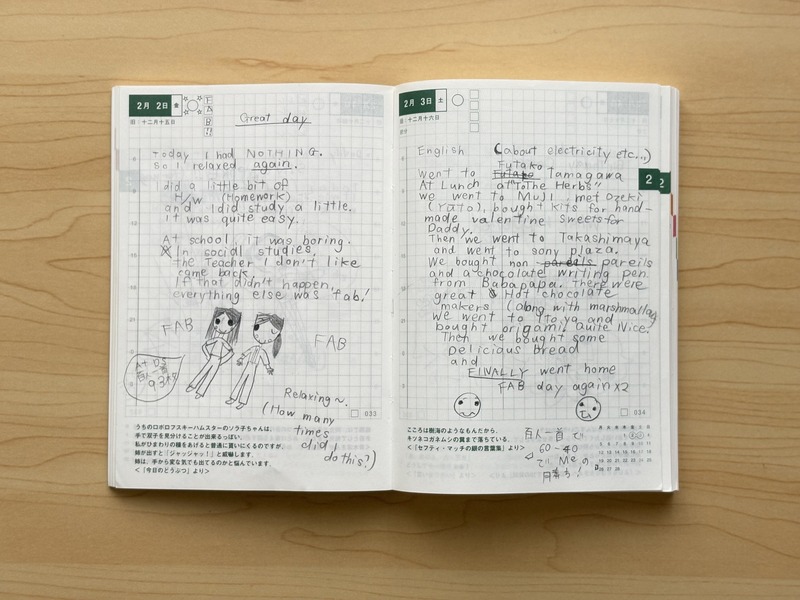 2月 2日 金
旧:十二月十五日
FAB!!
Great day
Today I had NOTHING.
So I relaxed again.
I did a little bit of
H/W (Homework)
and I did study a little.
It was quite easy.
At school, it was boring.
In social studies,
the teacher I don't like
came back.
If that didn't happen,
everything else was fab!
FAB
FAB
Relaxing~.
(How many
times
did I
do this?)
033
うちのロボロフスキーハムスターのソラ子ちゃんは、
手で双子を見分けることが出来るっぽい。
私がひまわりの種をあげると普通に貰いにくるのですが、
姉が出すと「ジャッジャッ!」と威嚇します。
姉は、手から変な気でも出てるのかと悩んでいます。
<『今日のどうぶつ』より>
2月 3日 土
旧:十二月十六日
節分
English (about electricity etc...)
Went to Futako Tamagawa
At Lunch at "To The Herbs"
we went to Muji, met Ozeki
bought kits for hand-
made valentine sweets for
Daddy.
Then we went to Takashimaya
and went to sony plaza.
We bought non pareils
and a chocolate writing pen
from Babapapa. There were
great Hot chocolate
makers (along with marshmallows)
we went to Itoya and
bought origami. Quite Nice.
Then we bought some
Delicious bread
and
FINALLY went home
FAB day again x2
2
2
034
こころは樹海のようなもんだから、
キツネコガネムシの翼まで落ちている。
<『セフティ・マッチの銀の言葉集』より>
百人一首で
60-40
で Meの
月 火 水 木 金 土 日